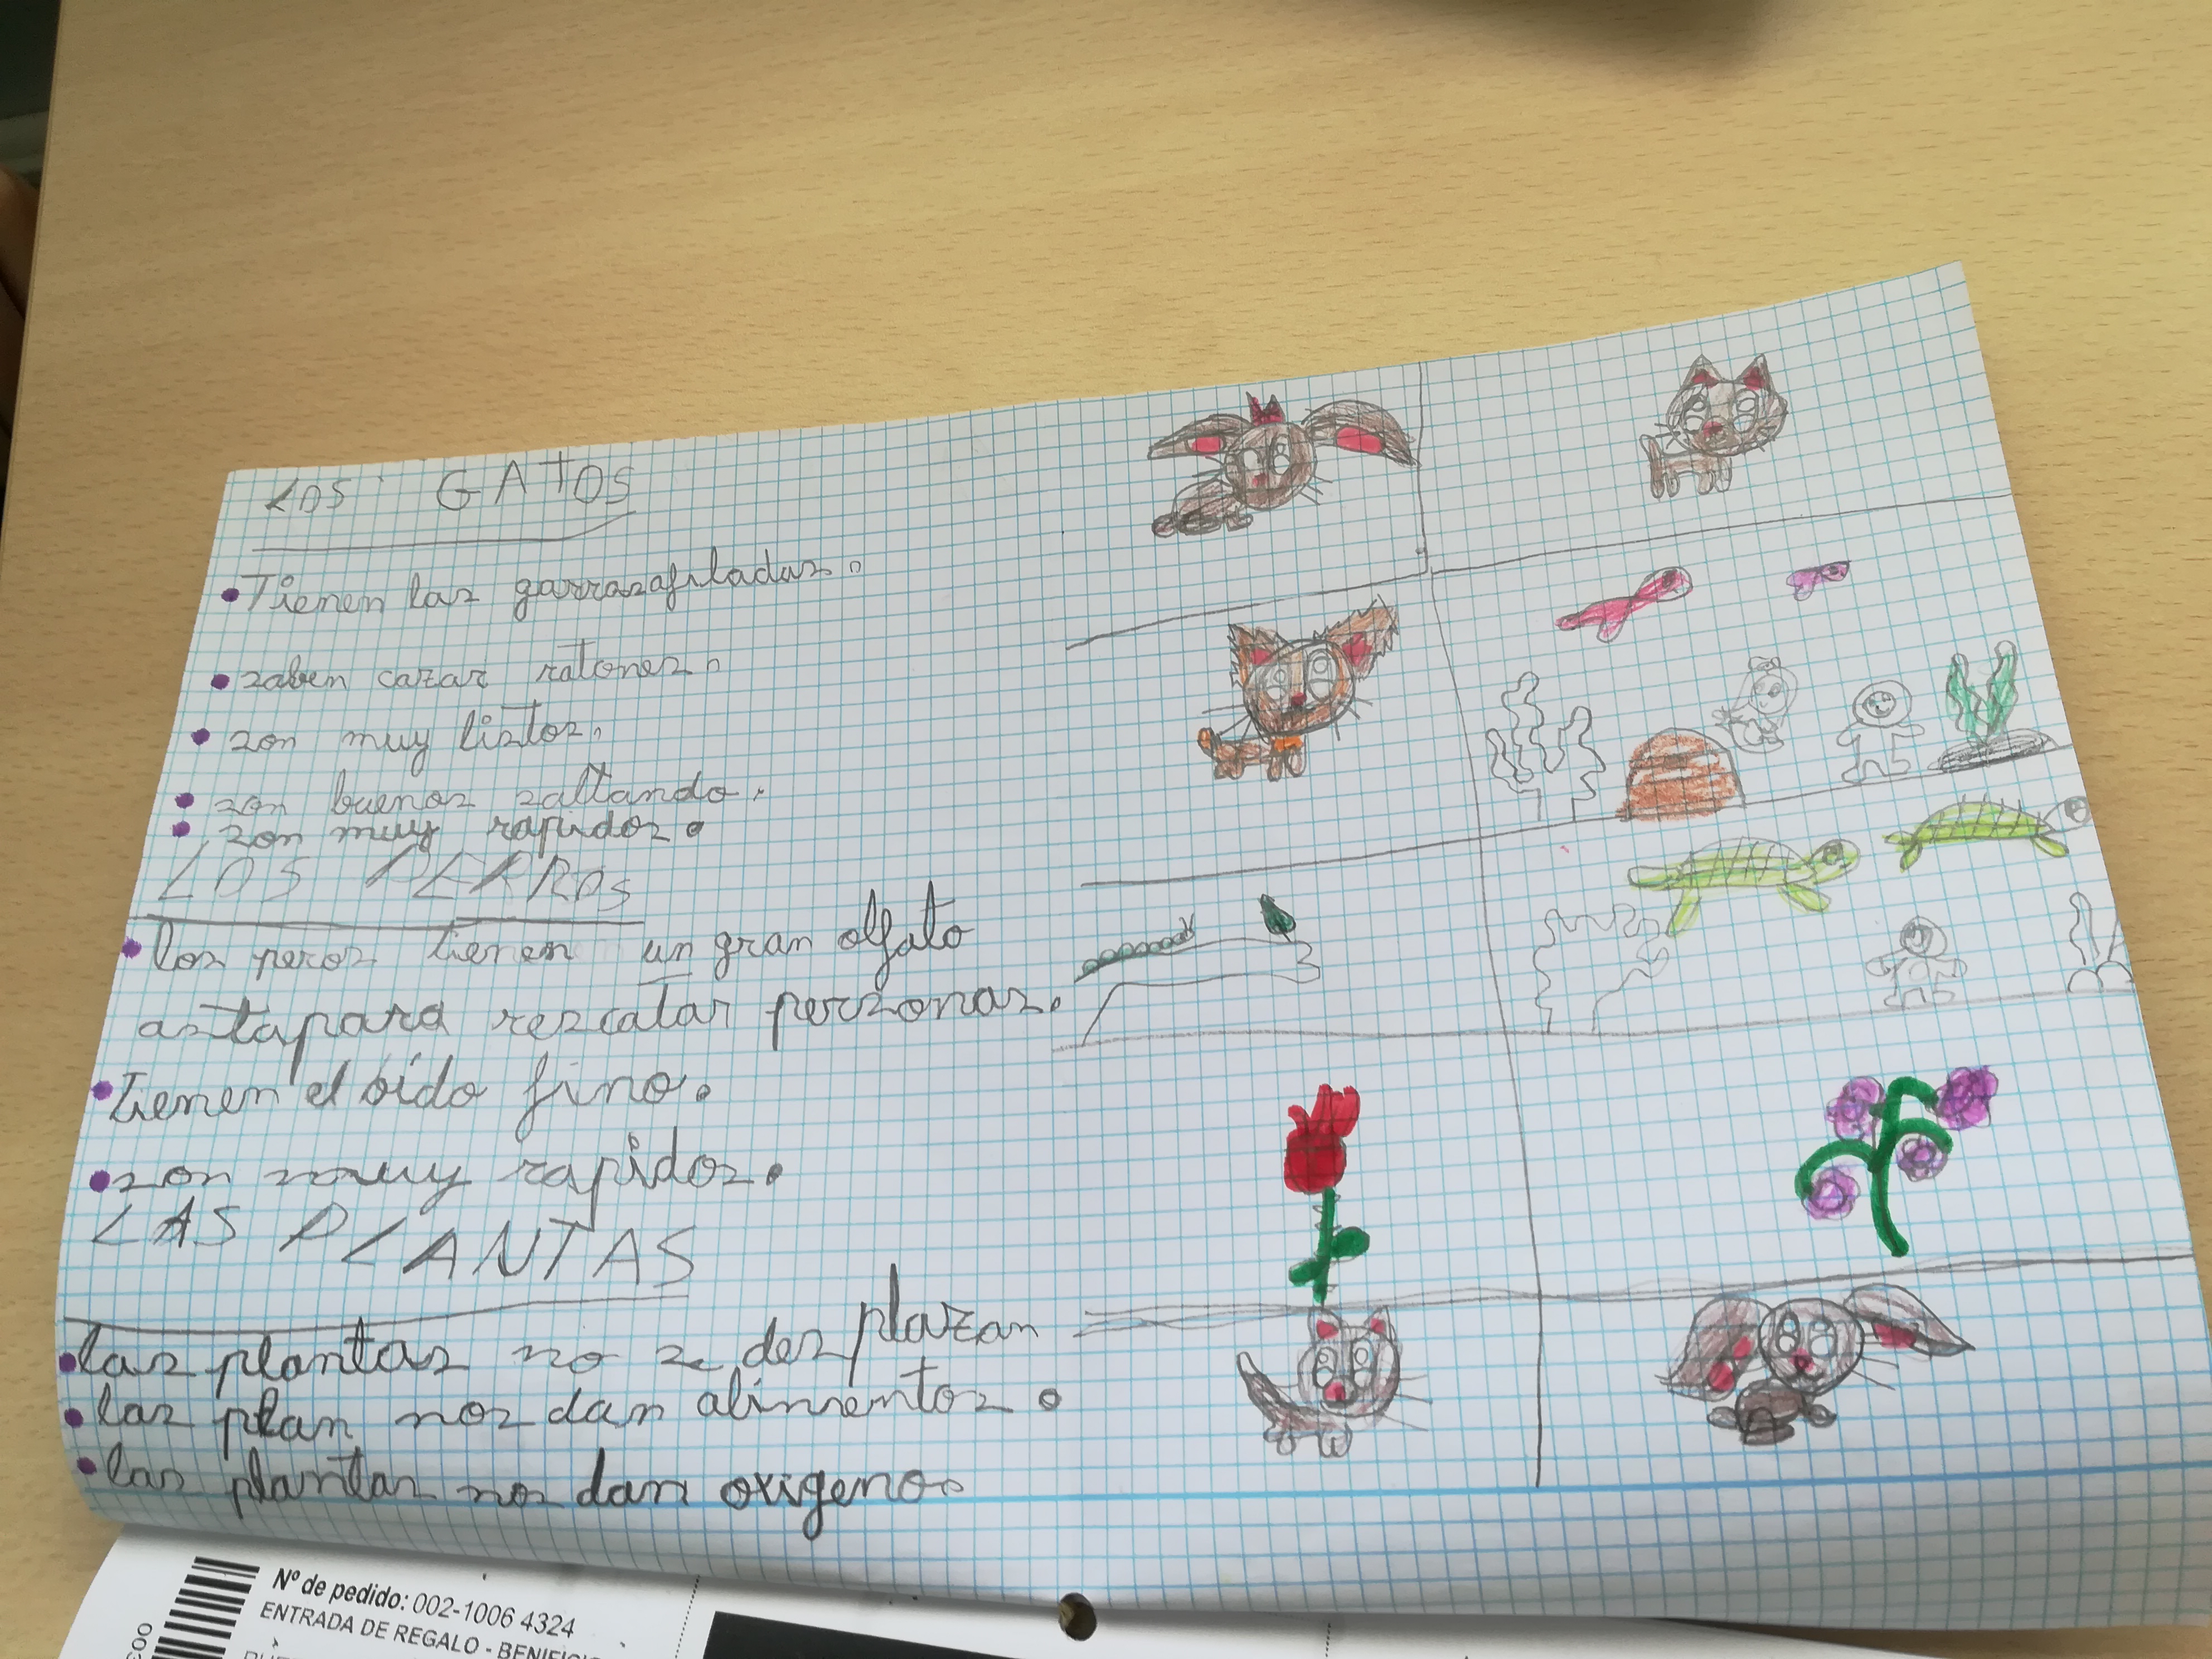 LOS GATOS
• Tienen las garrasafiladas.
• saben cazar ratones.
• son muy listos.
• son buenos saltando.
• son muy rapidos.
LOS PERROS
• los peros tienen un gran olfato
astapara rescatar personas.
• tienen el oido fino.
• son muy rapidos.
LAS PLANTAS
• las plantas no se des plazan
• las plan nos dan alimentos.
• las plantas nos dan oxigeno.
Nº de pedido: 002-1006 4324
ENTRADA DE REGALO - BENIFICI